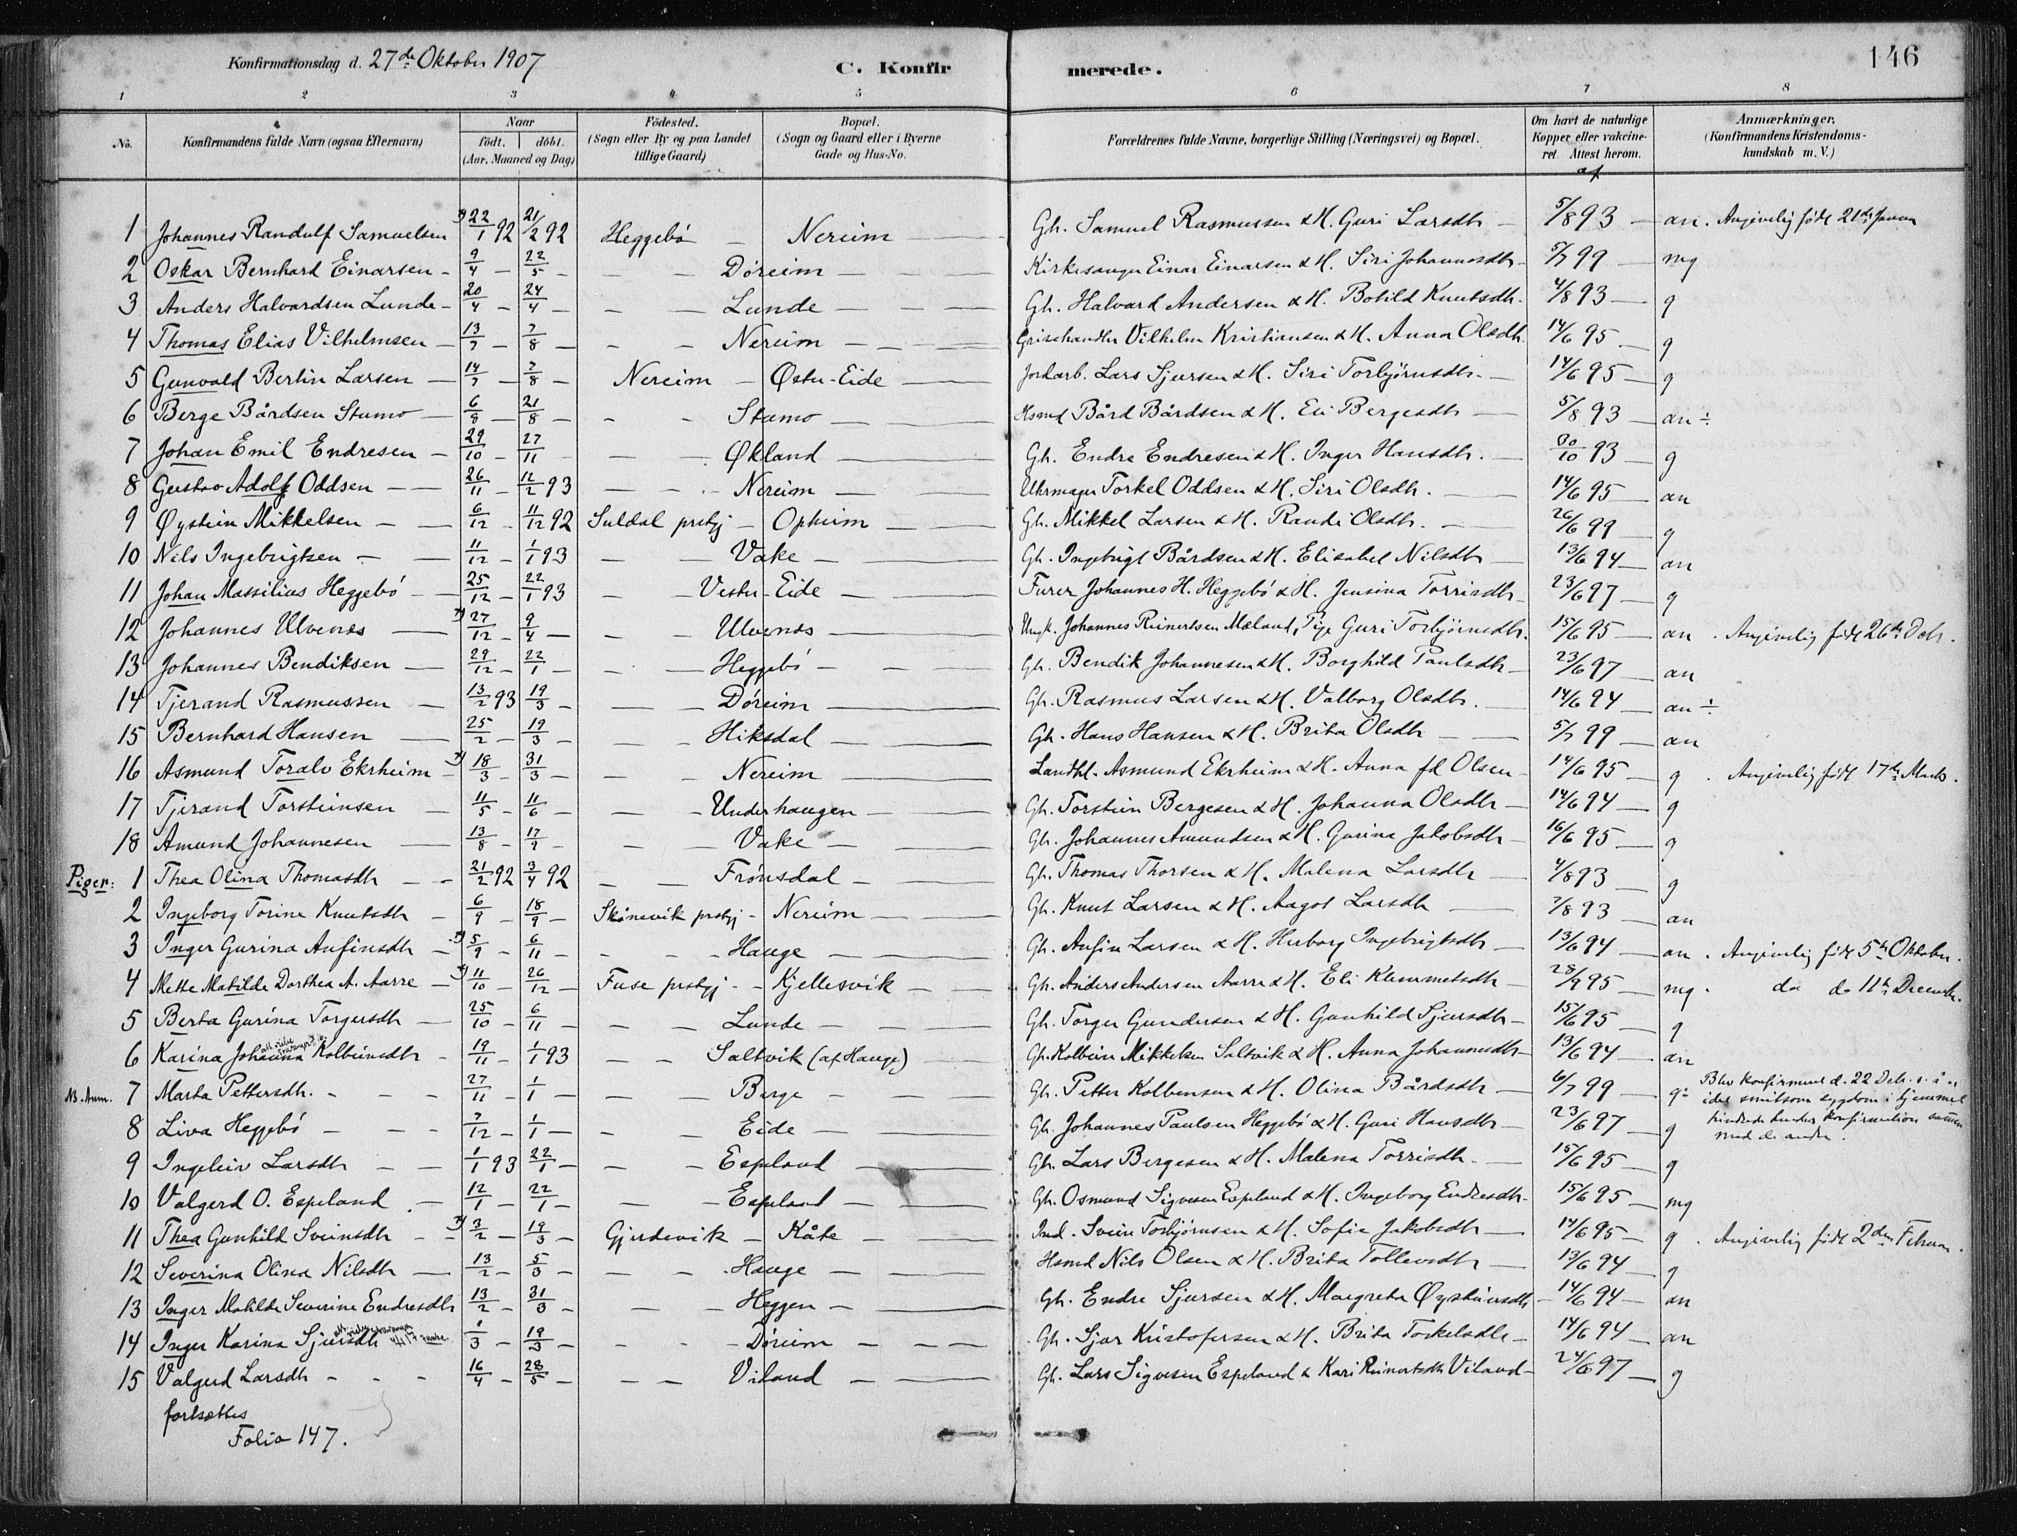 Konfirmationsdag d. 27de Oktober 1907 C. Konfirmerede. 146
1 2 3 4 5 6 7 8
No. Konfirmandens fulde Navn (ogsaa Efternavn) Naar födt. döbt. (Aar, Maaned og Dag) Födested. (Sogn eller By og paa Landet tillige Gaard) Bopæl. (Sogn og Gaard eller i Byerne Gade og Hus-No. Forældrenes fulde Navne, borgerlige Stilling (Næringsvei) og Bopæl. Om havt de naturlige Kopper eller vakcineret Attest herom. Anmærkninger. (Konfirmandens Kristendomskundskab m. V.)
af
1 Johannes Randulf Samuelsen 22/1 92 21/2 92 Heggebö — Nereim — Gh. Samuel Rasmussen & H. Guri Larsdtr — 5/8 93 — an. Angivelig født 21de Januar
2 Oskar Bernhard Einarsen — 9/4 — 22/5 — Döreim — Kirkesanger Einar Einarsen & H. Siri Johannesdtr — 5/7 99 — mg
3 Anders Halvardsen Lunde — 20/4 — 24/4 — Lunde — Gh. Halvard Andersen & H. Botild Knutsdtr. 4/8 93 — g
4 Thomas Elias Vilhelmsen — 13/7 — 7/8 — Nereim — Grisehandler Vilhelm Kristiansen & H. Anna Olsdtr. 14/6 95 — g
5 Gunvald Bertin Larsen — 14/7 — 7/8 — Nereim — Øster-Eide — Jordarb. Lars Sjursen & H. Siri Torbjörnsdtr. — 14/6 95 — g
6 Berge Bårdsen Stumo — 6/8 — 21/8 — Stumo — Hsmd Bård Bårdsen & H. Eli Bergesdtr — 5/8 93 — an ÷
7 Johan Emil Endresen — 29/10 — 27/11 — Økland — Gh. Endre Endresen & H. Inger Hansdtr. — 30/10 93 — g
8 Gustav Adolf Oddsen — 26/11 — 12/2 93 — Nereim — Uhrmager Torkel Oddsen & H. Siri Olsdtr. — 14/6 95 — an
9 Øystein Mikkelsen — 6/12 — 11/12 92 Suldal prstgj — Opheim — Gh. Mikkel Larsen & H. Randi Olsdtr. — 26/6 99 — g
10 Nils Ingebrigtsen — 11/12 — 1/1 93 — Vake — Gh. Ingebrigt Bårdsen & H. Elisabet Nilsdtr — 13/6 94 — an
11 Johan Massilius Heggebö — 25/12 — 22/1 93 — Vester-Eide — Furer Johannes H. Heggebö & H. Jensina Torrisdtr — 23/6 97 — g
12 Johannes Ulvenes — 27/12 — 9/4 — Ulvenes — Ungk. Johannes Reinertsen Mæland, Pige Guri Torbjörnsdtr. 15/6 95 — an. Angivelig født 26de Debr.
13 Johannes Bendiksen — 29/12 — 22/1 — Heggebö — Gh. Bendik Johannesen & H. Borghild Paulsdtr — 23/6 97 — an
14 Tjerand Rasmussen — 13/2 93 19/3 — Döreim — Gh. Rasmus Larsen & H. Valborg Olsdtr. — 14/6 94 — an ÷
15 Bernhard Hansen — 25/2 — 19/3 — Hiksdal — Gh. Hans Hansen & H. Brita Olsdtr — 5/7 99 — an
16 Asmund Toralv Ekrheim — 18/3 — 31/3 — Nereim — Landhl. Asmund Ekrheim & H. Anna fd Olsen — 14/6 95 — g. Angivelig født 17de Marts.
17 Tjerand Torsteinsen — 11/5 — 11/6 — Underhaugen — Gh. Torstein Bergesen & H. Johanna Olsdtr — 14/6 94 — g
18 Amund Johannesen — 13/8 — 17/9 — Vake — Gh. Johannes Amundsen & H. Gurina Jakobsdtr — 16/6 95 — g
Piger: 1 Thea Olina Thomasdtr — 21/2 92 3/4 92 — Frönsdal — Gh. Thomas Thorsen & H. Malena Larsdtr — 4/8 93 — g
2 Ingeborg Torine Knutsdtr — 6/9 — 18/9 — Skånevik prstgj — Nereim — Gh. Knut Larsen & H. Aagot Larsdtr — 7/8 93 — an
3 Inger Gurina Anfinsdtr — 5/9 — 6/11 — Hauge — Gh. Anfin Larsen & H. Herborg Ingebrigtsdtr — 13/6 94 — an. Angivelig født 5te Oktober.
4 Mette Matilde Dorthea A. Aarre — 11/10 — 26/12 — Fuse prstgj — Kjellesvik — Gh. Anders Andersen Aarre & H. Eli Klemmetsdtr — 28/9 95 — mg. do do 11te Decembr.
5 Berta Gurina Torgersdtr — 25/10 — 6/11 — Lunde — Gh. Torger Gundersen & H. Gunhild Sjursdtr — 15/6 95 — g
6 Karina Johanna Kolbeinsdtr — 19/11 — 1/1 93 — Saltvik (af Hauge) Gh. Kolbein Mikkelsen Saltvik & H. Anna Johannesdtr — 13/6 94 — an
NB. Anm. 7 Marta Pettersdtr. — 27/11 — 1/1 — Berge — Gh. Petter Kolbensen & H. Olina Bårdsdtr — 6/7 99 — g. Blev konfirmeret d. 22 Debr. s. å.
idet smitsom sygdom i hjemmet
hindrede hendes konfirmation sammen
med de andre.
8 Liva Heggebö — 7/12 — 1/1 — Eide — Gh. Johannes Paulsen Heggebö & H. Guri Hansdtr — 23/6 97 — g
9 Ingeleiv Larsdtr — 1/1 93 22/1 — Espeland — Gh. Lars Bergesen & H. Malena Torrisdtr. — 15/6 95 — g
10 Valgerd O. Espeland — 12/1 — 22/1 — Espeland — Gh. Osmund Sigvesen Espeland & H. Ingeborg Endresdtr. 15/6 95 — mg
11 Thea Gunhild Sveinsdtr — 3/2 — 19/3 — Gjerdevik — Kåte — Ind. Svein Torbjörnsen & H. Sofie Jakobsdtr — 14/6 95 — g. Angivelig født 2den Februar.
12 Severina Olina Nilsdtr — 13/2 — 5/3 — Hauge — Hsmd Nils Olsen & H. Brita Tollevsdtr — 13/6 94 — g
13 Inger Matilde Severine Endresdtr 13/2 — 31/3 — Heggen — Gh. Endre Sjursen & H. Margreta Øysteinsdtr — 14/6 94 — an
14 Inger Karina Sjursdtr 1/3 — 19/3 — Döreim — Gh. Sjur Kristofersen & H. Brita Torkelsdtr — 14/6 94 — an
15 Valgerd Larsdtr — 16/4 — 28/5 — Viland — Gh. Lars Sigvesen Espeland & Kari Reinertsdtr Viland — 24/6 97 — g
fortsættes
Folio 147.